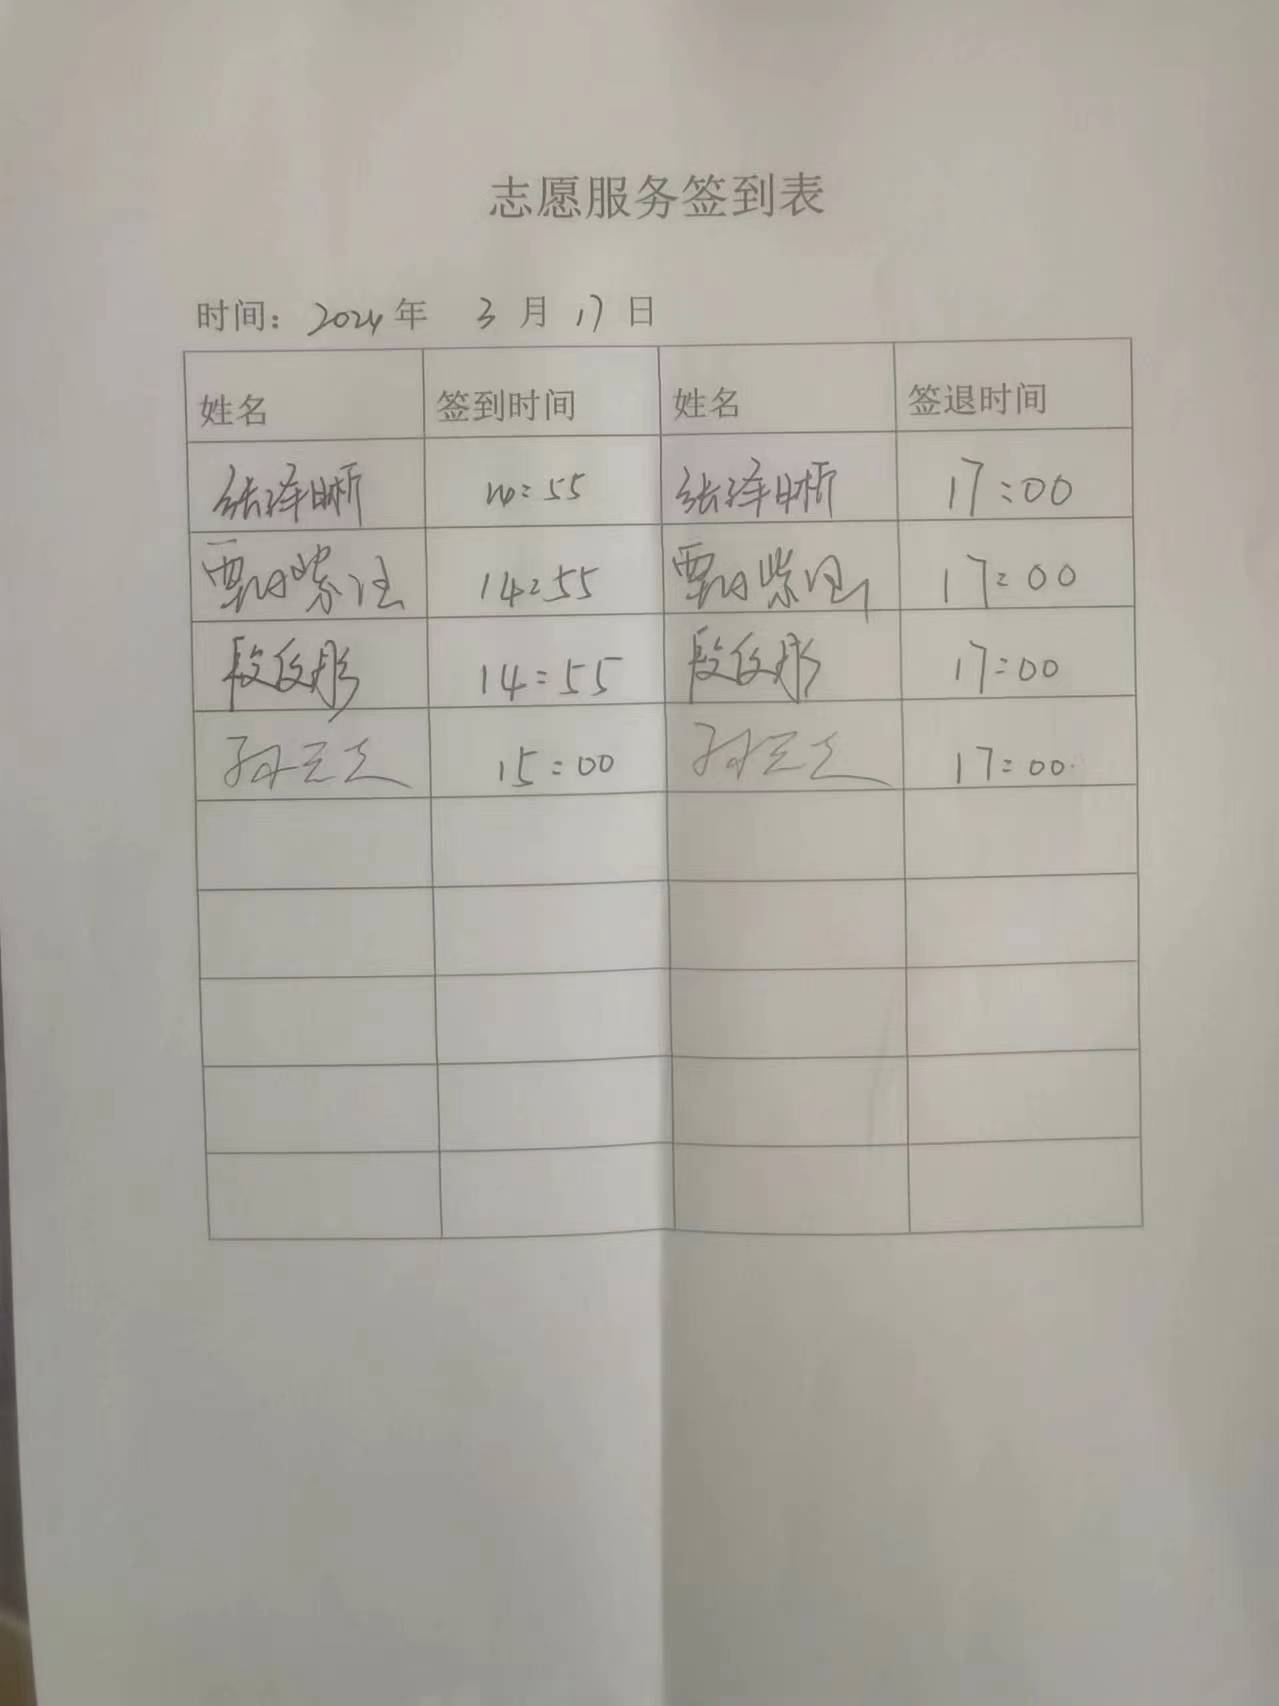 志愿服务签到表
时间：2024年 3月17日
姓名 签到时间 姓名 签退时间
张泽晰 14:55 张泽晰 17:00
紫 14:55 紫 17:00
段 14:55 段 17:00
孙 15:00 孙 17:00